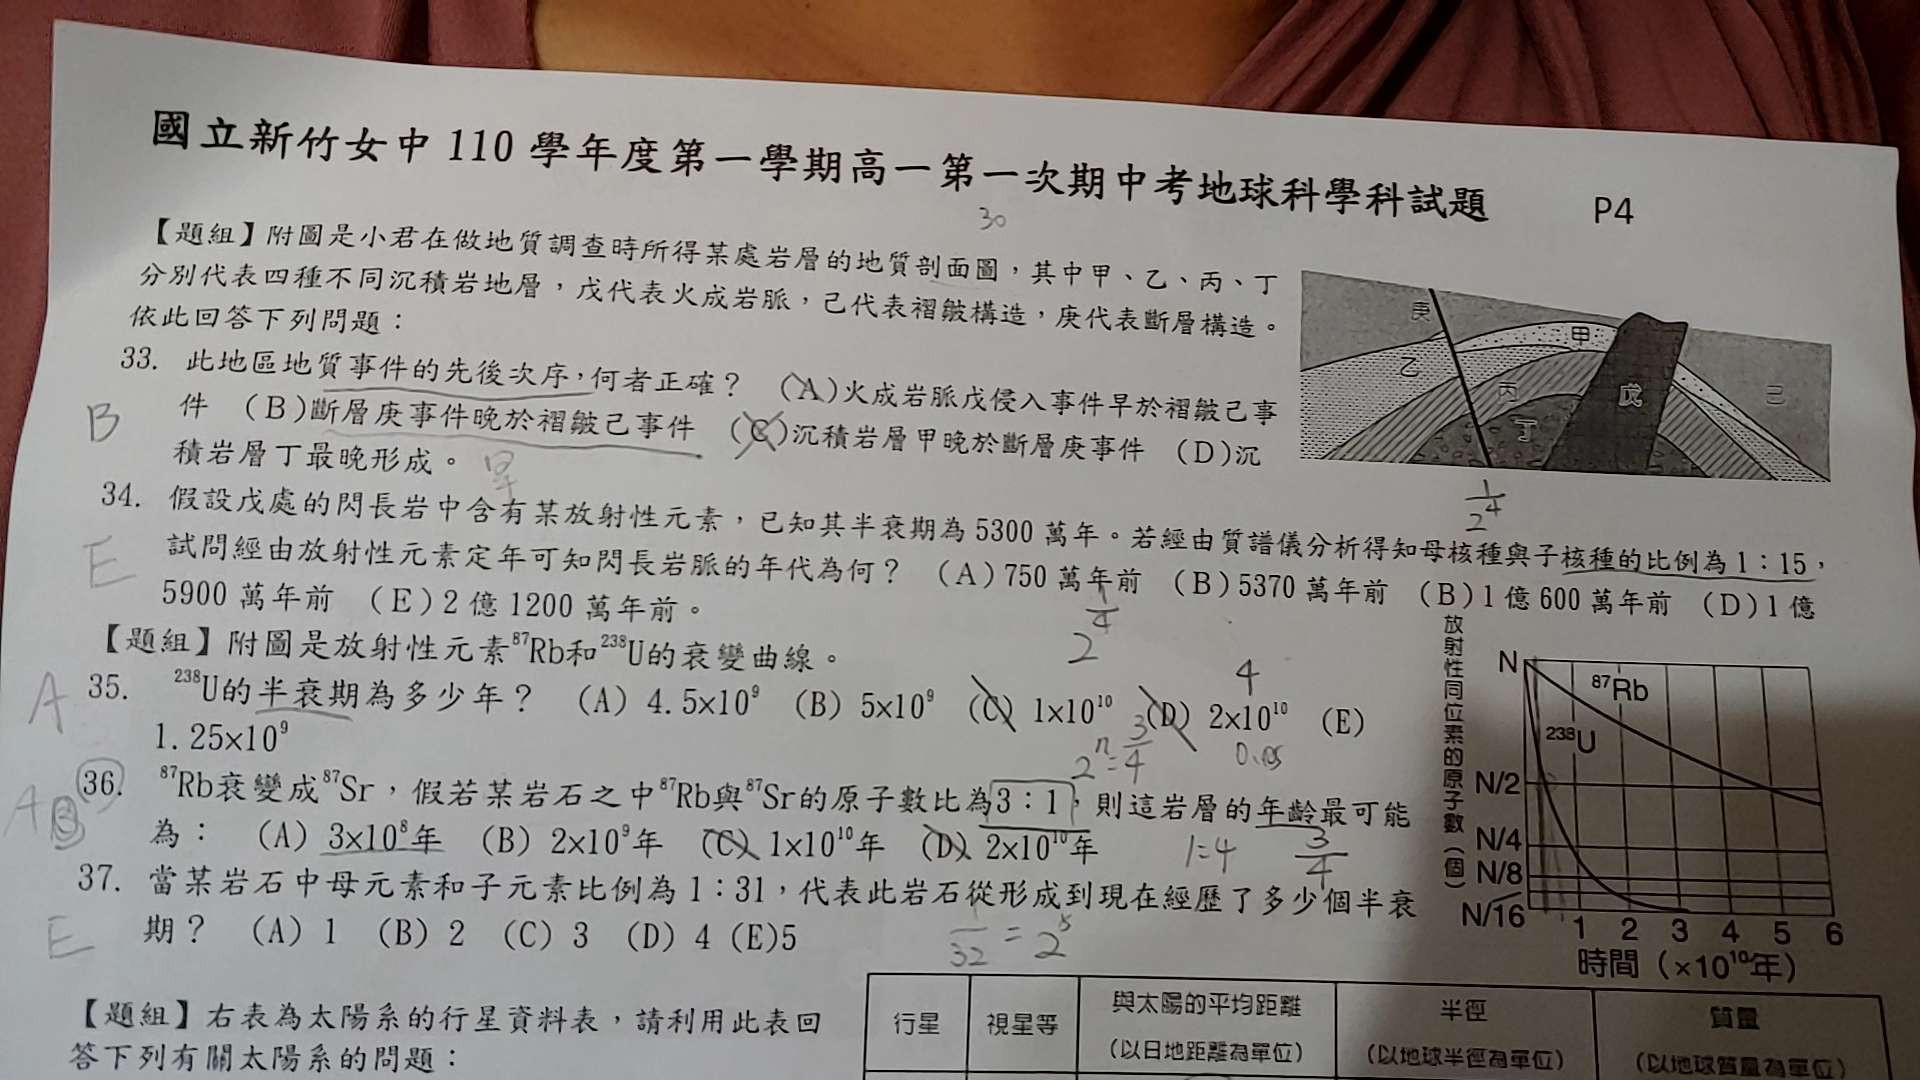 國立新竹女中 110 學年度第一學期高一第一次期中考地球科學科試題 P4
30
【題組】附圖是小君在做地質調查時所得某處岩層的地質剖面圖，其中甲、乙、丙、丁
分別代表四種不同沉積岩地層，戊代表火成岩脈，己代表褶皺構造，庚代表斷層構造。
依此回答下列問題：
庚
甲
乙
丙
丁
戊
己
33. 此地區地質事件的先後次序，何者正確？ (A)火成岩脈戊侵入事件早於褶皺己事
B
件 (B)斷層庚事件晚於褶皺己事件 (C)沉積岩層甲晚於斷層庚事件 (D)沉
積岩層丁最晚形成。
早
34. 假設戊處的閃長岩中含有某放射性元素，已知其半衰期為 5300 萬年。若經由質譜儀分析得知母核種與子核種的比例為 1：15，
1/2⁴
E
試問經由放射性元素定年可知閃長岩脈的年代為何？ (A)750 萬年前 (B)5370 萬年前 (B)1 億 600 萬年前 (D)1 億
5900 萬年前 (E)2 億 1200 萬年前。
【題組】附圖是放射性元素⁸⁷Rb和²³⁸U的衰變曲線。
A
35. ²³⁸U的半衰期為多少年？ (A) 4.5×10⁹ (B) 5×10⁹ (C) 1×10¹⁰ (D) 2×10¹⁰ (E)
4
1.25×10⁹
2ⁿ=3/4
0.05
36. ⁸⁷Rb衰變成⁸⁷Sr，假若某岩石之中⁸⁷Rb與⁸⁷Sr的原子數比為3：1，則這岩層的年齡最可能
A B
為： (A) 3×10⁸年 (B) 2×10⁹年 (C) 1×10¹⁰年 (D) 2×10¹⁰年
1:4
3/4
37. 當某岩石中母元素和子元素比例為 1：31，代表此岩石從形成到現在經歷了多少個半衰
E
期？ (A) 1 (B) 2 (C) 3 (D) 4 (E)5
1/32 = 2⁵
放射性同位素的原子數（個）
N
N/2
N/4
N/8
N/16
⁸⁷Rb
²³⁸U
1 2 3 4 5 6
時間（×10¹⁰年）
【題組】右表為太陽系的行星資料表，請利用此表回
答下列有關太陽系的問題：
行星 視星等 與太陽的平均距離 半徑 質量
（以日地距離為單位） （以地球半徑為單位） （以地球質量為單位）